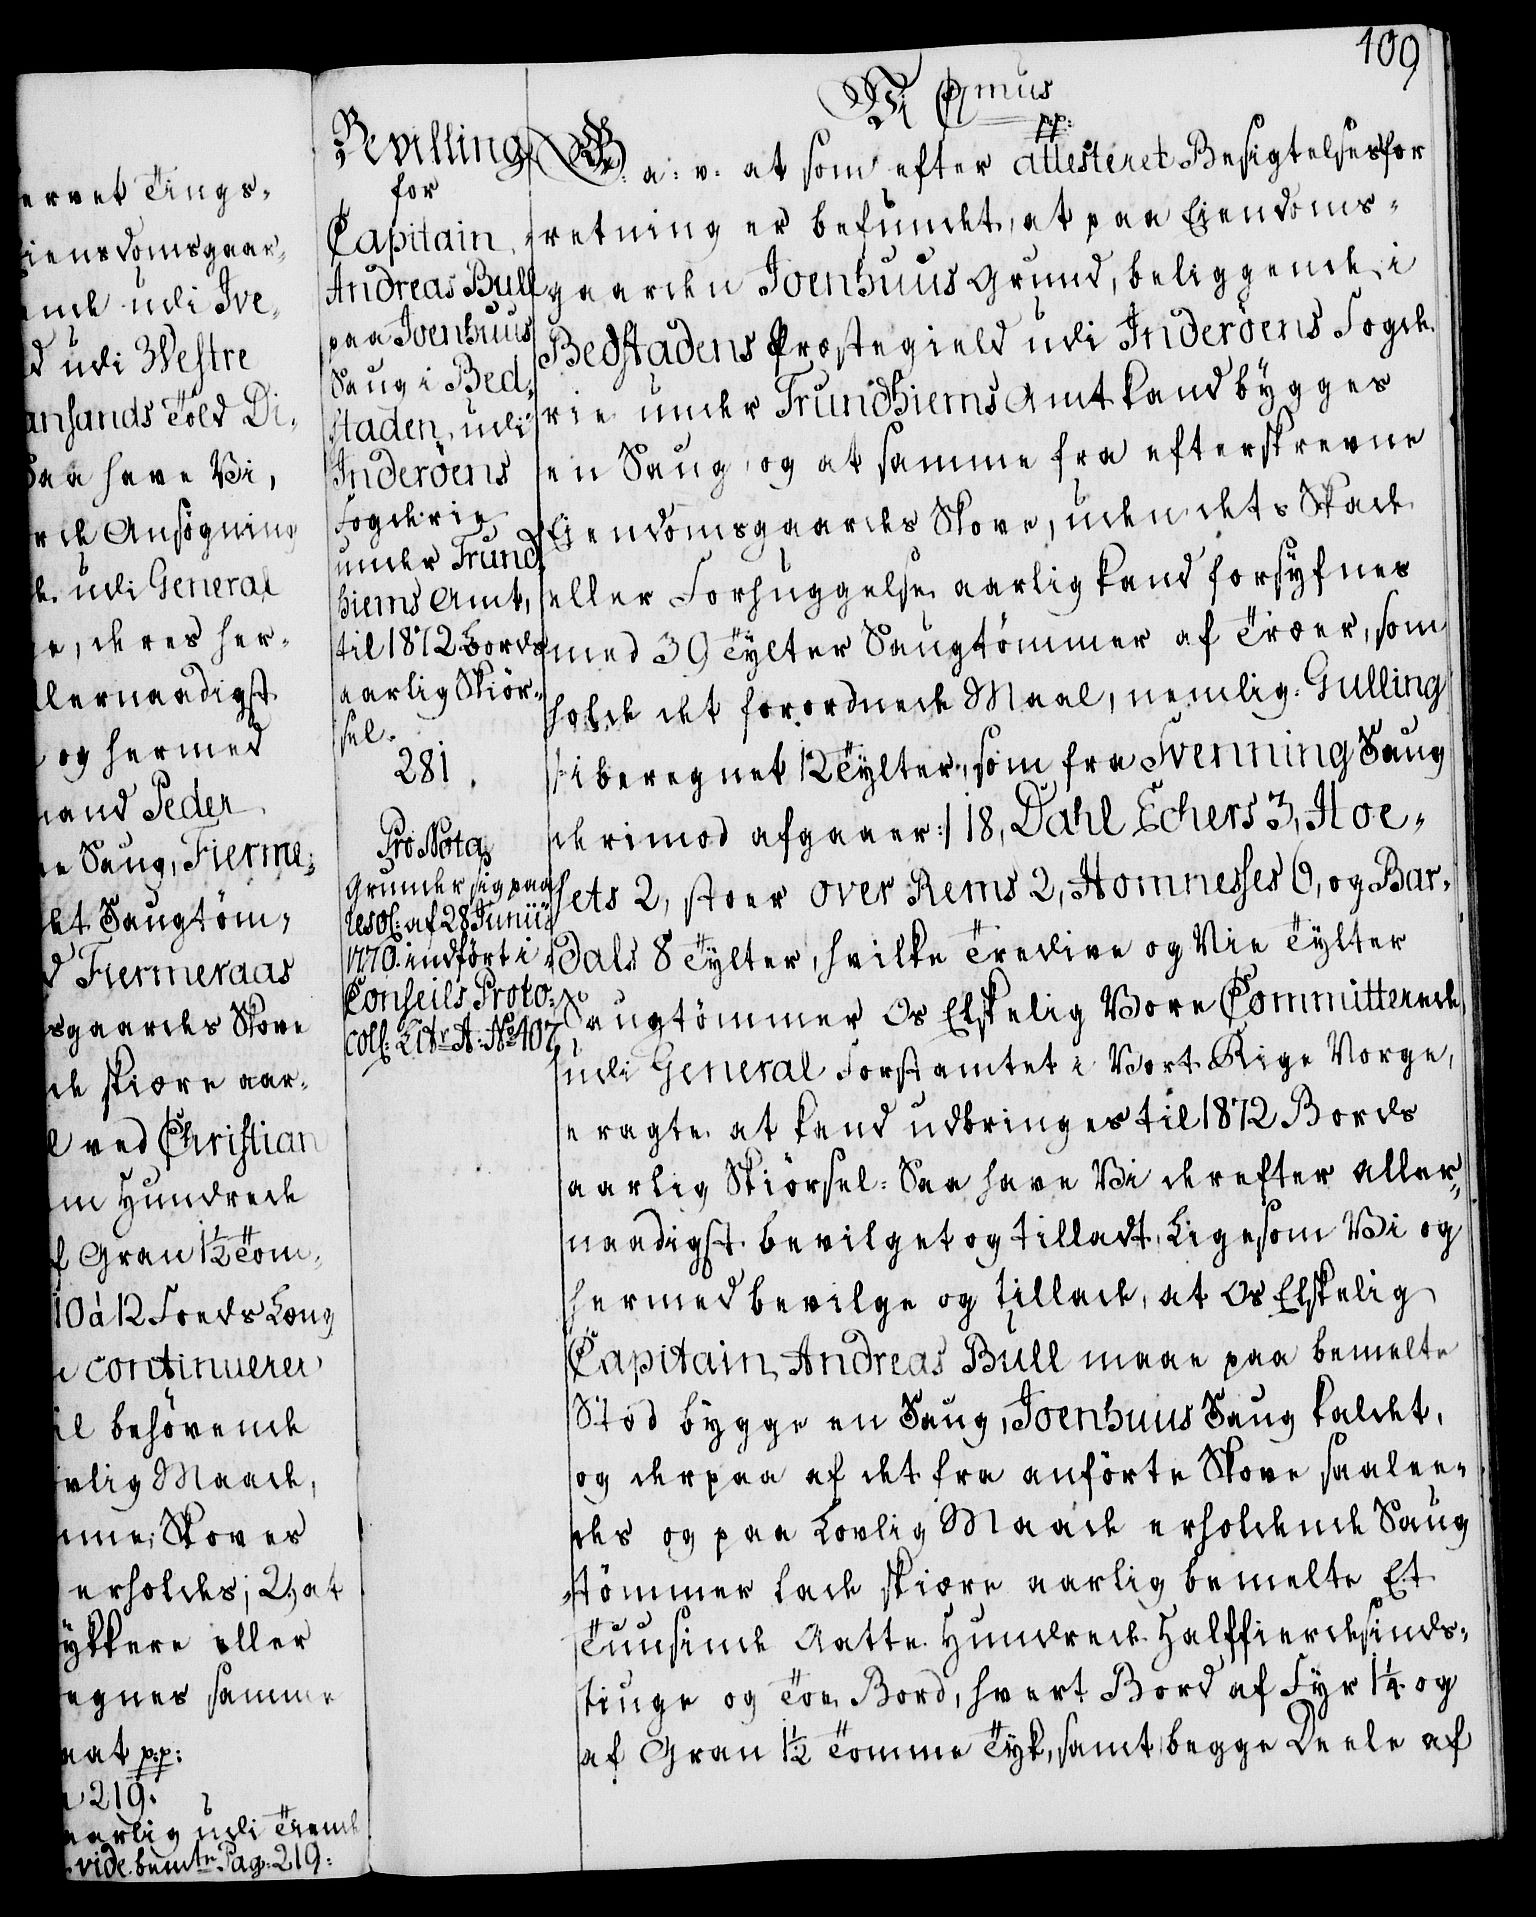 109
ervet Tings-
iensdomsgaar-
ende udi Ive-
d udi Westre
ansands Told Di-
Saa have Vi,
rde Ansøgning
de udi General
ge, deres her-
llernaadigst
og hermed
mand Peder
ne Saug, Fierme-
det Saugtøm-
d Fiermeraas
sgaardes Skove
de skiære aar-
l ved Christian
m Hundrede
f Gran 1½ Tom-
10 à 12 Foeds Læng
e continuerer
il behøvende
vlig Maade,
nne Skoves
erholdes; 2, at
ykkere eller
egnes samme
aat p:p:
219.
aarlig udi Tiende
vide bemte Pag: 219:
Bevilling
for
Capitain
Andreas Bull
paa Joenhuus
Saug i Bed-
staden, udi
Inderöens
Fogderie
under Trund-
hiems Amt,
til 1872 Bords
aarlig Skiör-
sel.
281.
Pro Nota
Grunder sig paa
resol: af 28 Junii
1770. indfört i
Conseils Proto-
coll: Litr A: No 407
Vi C 7mus
p.p:
G: a: v: at som efter attesteret Besigtelsesfor
retning er befundet, at paa Eiendoms-
gaarden Joenhuus Grund, beliggende i
Bedstadens Præstegield udi Inderöens Fogde
rie under Trundhiems Amt kand bygges
en Saug, og at samme fra efterskrevne
Eiendomsgaardes Skove, uden dets Skade
eller Forhuggelse aarlig kand forsyfnes
med 39 Tylter Saugtömmer af Træer, som
holde det forordnede Maal, nemlig: Gulling
/: iberegnet 12 Tylter, som fra Svenning Saug
derimod afgaaer :/ 18, Dahl Echers 3, Hoe-
sets 2, stoer over Rems 2, Homnesses 6, og Bar-
dals 8 Tylter, hvilke Tredive og Nie Tylter
Saugtömmer Os Elskelig Vore Committerede
udi General Forstamtet i Vort Rige Norge,
eragte at kand udbringes til 1872 Bords
aarlig Skiörsel: Saa have Vi derefter aller-
naadigst bevilget og tilladt, Ligesom Vi og
hermed bevilge og tillade, at Os Elskelig
Capitain Andreas Bull maae paa bemelte
Stöd bygge en Saug, Joenhuus Saug kaldet,
og derpaa af det fra anförte Skove saalee-
des og paa Lovlig Maade erholdende Saug
tömmer lade skiære aarlig bemelte Et
Tuusinde Aatte Hundrede Halffierdesinds-
tiuge og Toe Bord, hvert Bord af Fyr 1¼ og
af Gran 1½ Tomme Tyk, samt begge Deele af